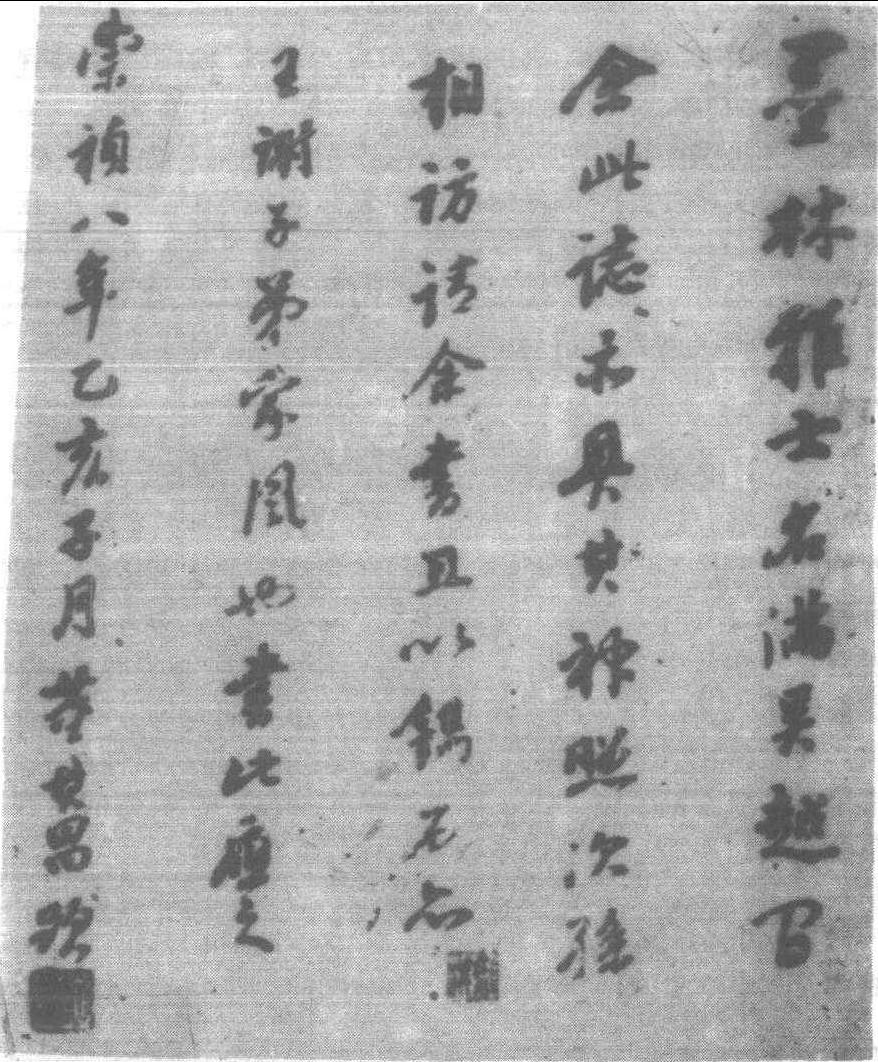 墨林雅士名滿吳越即
今此誌亦具其神照次孫
相訪請余書且以鐫石
王謝子弟家風如
書此應之
崇禎八年乙亥子月董其昌跋